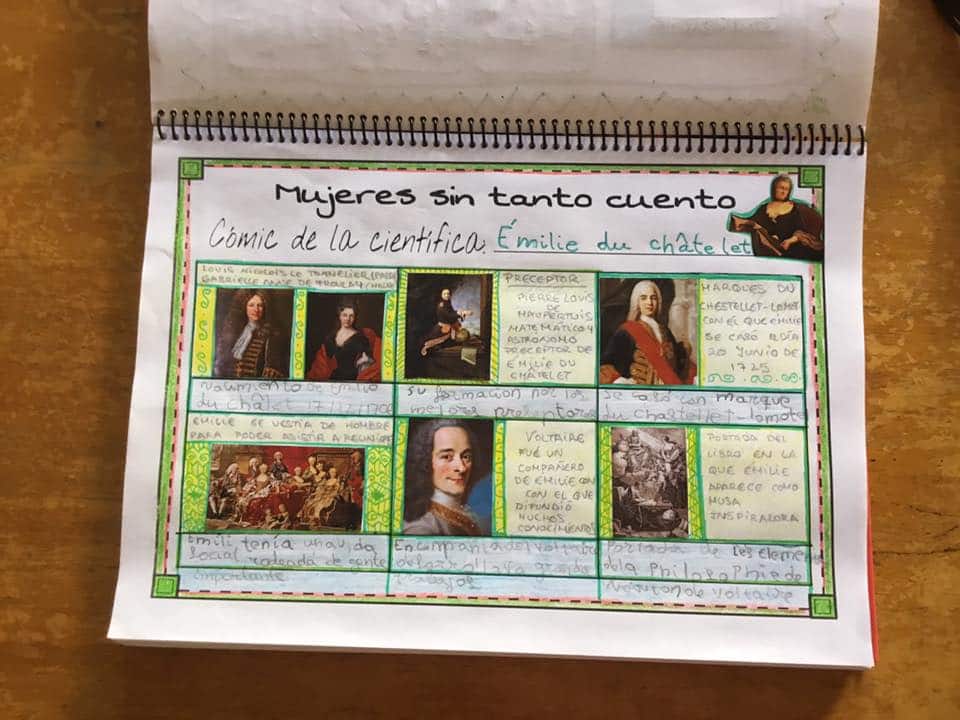 Mujeres sin tanto cuento
Cómic de la científica: Émilie du châtelet
LOUIS NICOLOIS LE TONNELIER
GABRIELLE ANNE DE FROULAY
PRECEPTOR
PIERRE LOUIS
DE
MAUPERTUIS
MATEMÁTICO Y
ASTRONOMO
PRECEPTOR DE
EMILIE DU
CHÂTELET
MARQUES DU
CHESTELLET-LOMOT
CON EL QUE EMILIE
SE CASÓ EL DÍA
20 JUNIO DE
1725
nacimiento de Emilio
du Châlet 17/12/1706
su formacion por los
mejores
se casó con marque
du chastellet-lomote
EMILIE SE VESTIA DE HOMBRE
PARA PODER ASISTIR A
VOLTAIRE
FUÉ UN
COMPAÑERO
DE EMILIE CON
CON EL QUE
DIFUNDIÓ
MUCHOS
CONOCIMIENTOS
PORTADA DEL
LIBRO EN LA
QUE EMILIE
APARECE COMO
MUSA
INSPIRADORA
Emili tenía una vida
social rodeada de gente
importante
En compañia del voltaire
desarrolla grande
trabajos
Portada de les elemen
de la Philosophie de
Newton de voltaire